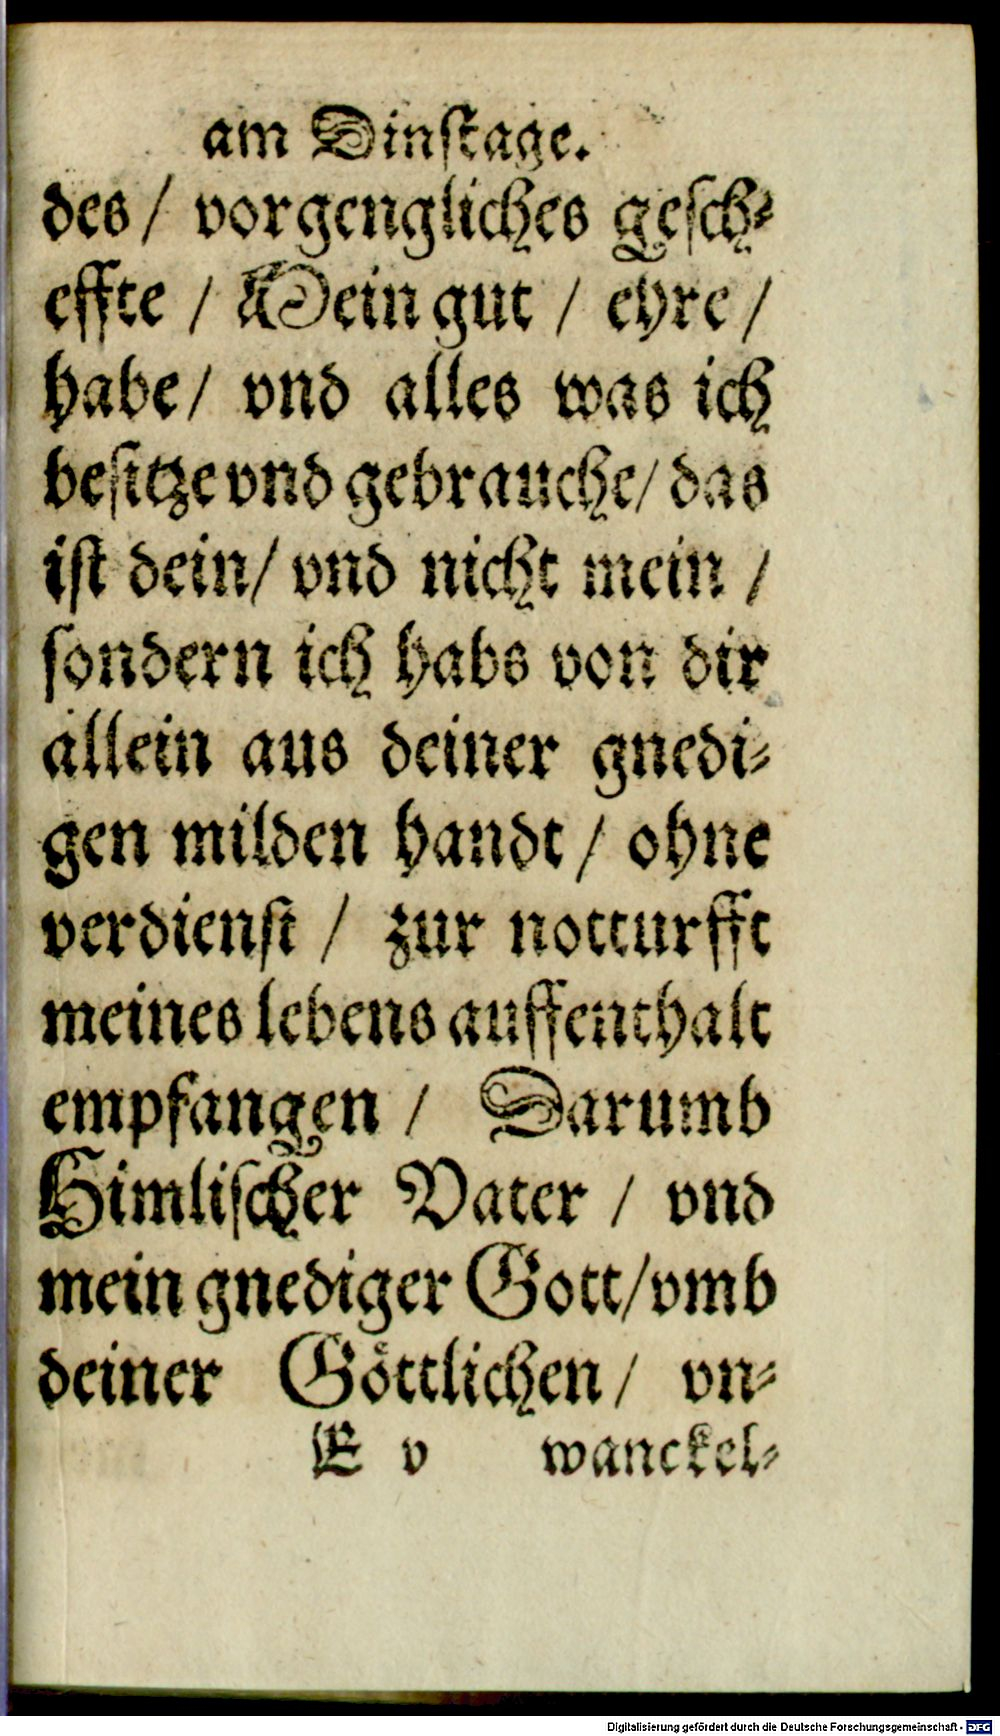 am Dinſtage.
des / vorgengliches geſch-
effte / Mein gut / ehre /
habe / vnd alles was ich
beſitze vnd gebrauche / das
iſt dein / vnd nicht mein /
ſondern ich habs von dir
allein aus deiner gnedi-
gen milden handt / ohne
verdienſt / zur notturfft
meines lebens auffenthalt
empfangen / Darumb
Himliſcher Vater / vnd
mein gnediger Gott / vmb
deiner Goͤttlichen / vn-
E v wanckel-
Digitalisierung gefördert durch die Deutsche Forschungsgemeinschaft - DFG